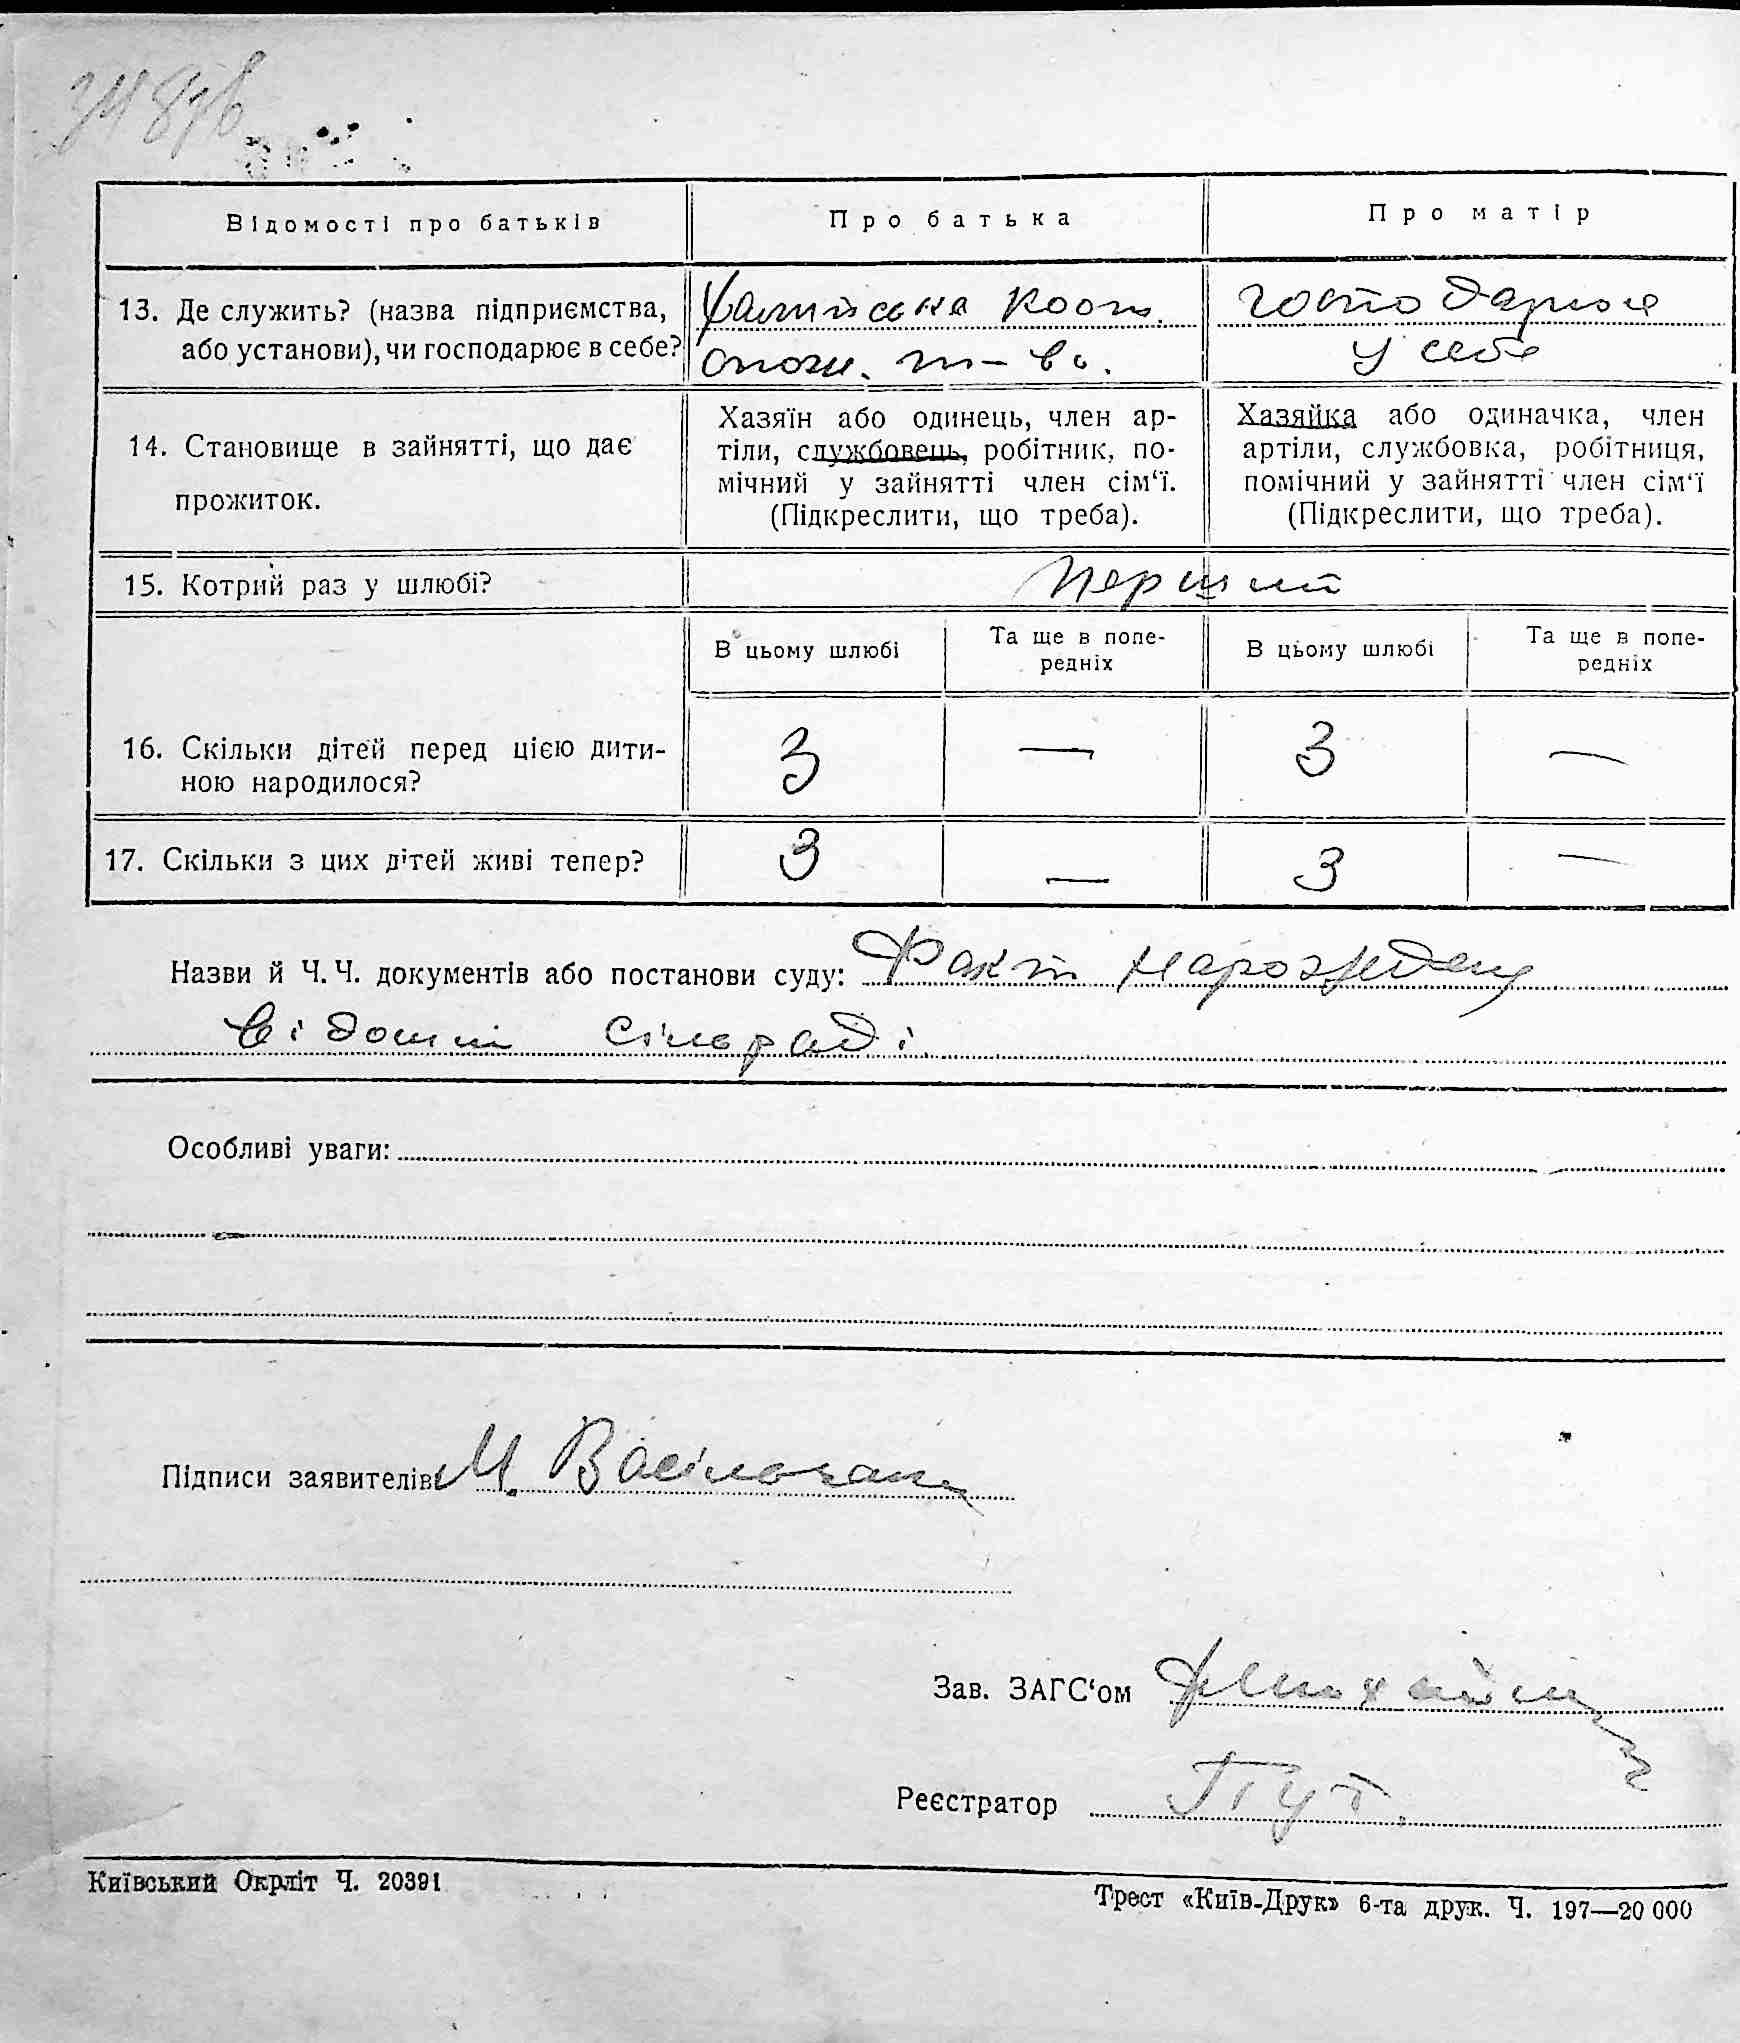 Відомості про батьків
Про батька
Про матір
13. Де служить? (назва підприємства,
або установи), чи господарює в себе?
кооп.
спож. т-во.
господарює
у себе
14. Становище в зайнятті, що дає
прожиток.
Хазяїн або одинець, член ар-
тіли, службовець, робітник, по-
мічний у зайнятті член сім‘ї.
(Підкреслити, що треба).
Хазяйка або одиначка, член
артіли, службовка, робітниця,
помічний у зайнятті член сім‘ї
(Підкреслити, що треба).
15. Котрий раз у шлюбі?
Перший
В цьому шлюбі
Та ще в попе-
редніх
В цьому шлюбі
Та ще в попе-
редніх
16. Скільки дітей перед цією дити-
ною народилося?
3 — 3 —
17. Скільки з цих дітей живі тепер?
3 — 3 —
Назви й Ч. Ч. документів або постанови суду: Факт
відомий сільраді
Особливі уваги:
Підписи заявителів М.
Зав. ЗАГС‘ом
Реєстратор
Київський Окрліт Ч. 20391
Трест «Київ-Друк» 6-та друк. Ч. 197—20 000